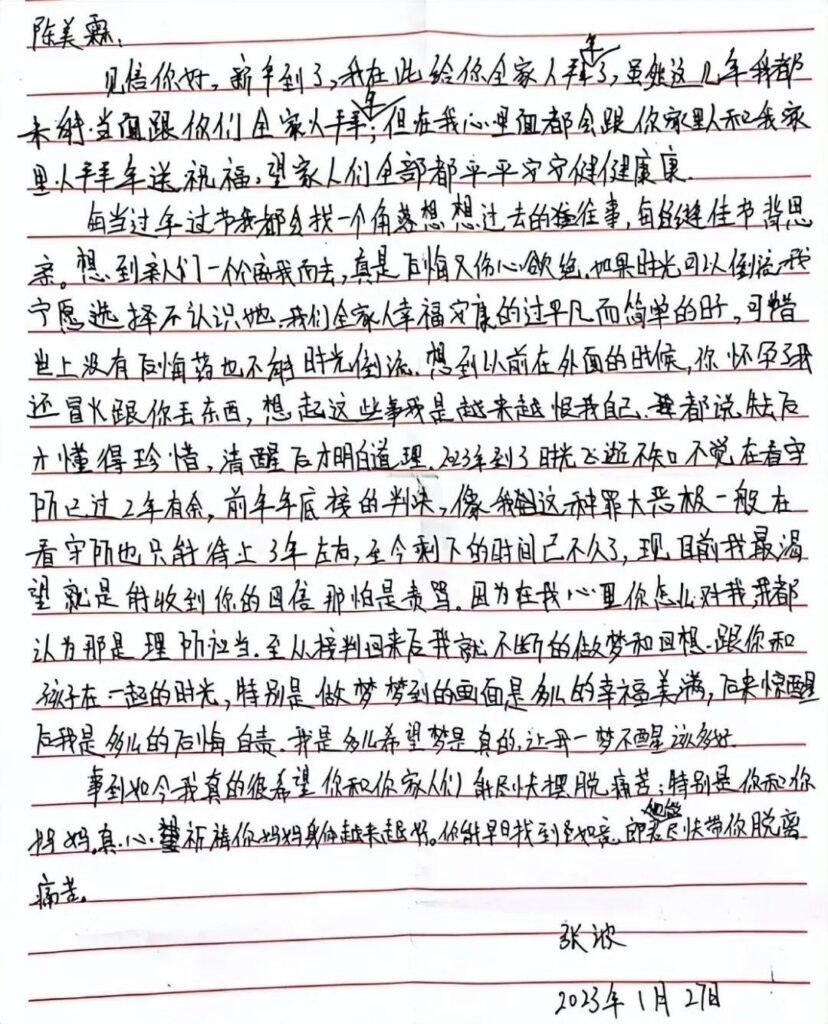 陈美霖:
见信你好,新年到了,我在此给你全家人拜年了,虽然这几年我都
未能当面跟你们全家人拜年;但在我心里面都会跟你家里人和我家
里人拜年送祝福,望家人们全部都平平安安健健康康.
每当过年过节我都会找一个角落想想过去的种往事,每经逢佳节背思
亲。想到亲人们一个个离我而去,真是后悔又伤心欲绝.如果时光可以倒流我
宁愿选择不认识她.我们全家人幸福安康的过平凡而简单的日子,可惜
世上没有后悔药也不能时光倒流.想到以前在外面的时候,你怀孕了我
还冒火跟你丢东西,想起这些事我是越来越恨我自己.我都说失去后
才懂得珍惜,清醒后才明白道理.2023年到了时光飞逝不知不觉在看守
所已过2年有余,前年年底接的判决,像我这种罪大恶极一般在
看守所也只能待上3年左右,至今剩下的时间已不久了,现目前我最渴
望就是能收到你的回信那怕是责骂.因为在我心里你怎么对我,我都
认为那是理所应当.至从接判回来后我就不断的做梦和回想.跟你和
孩子在一起的时光,特别是做梦梦到的画面是多么的幸福美满,后来惊醒
后我是多么的后悔自责.我是多么希望梦是真的,让我一梦不醒该多好.
事到如今我真的很希望你和你家人们能尽快摆脱痛苦;特别是你和你
妈妈.真心祈祷你妈妈身体越来越好。你能早日找到如意郎君他能尽快带你脱离
痛苦。
张波
2023年1月27日